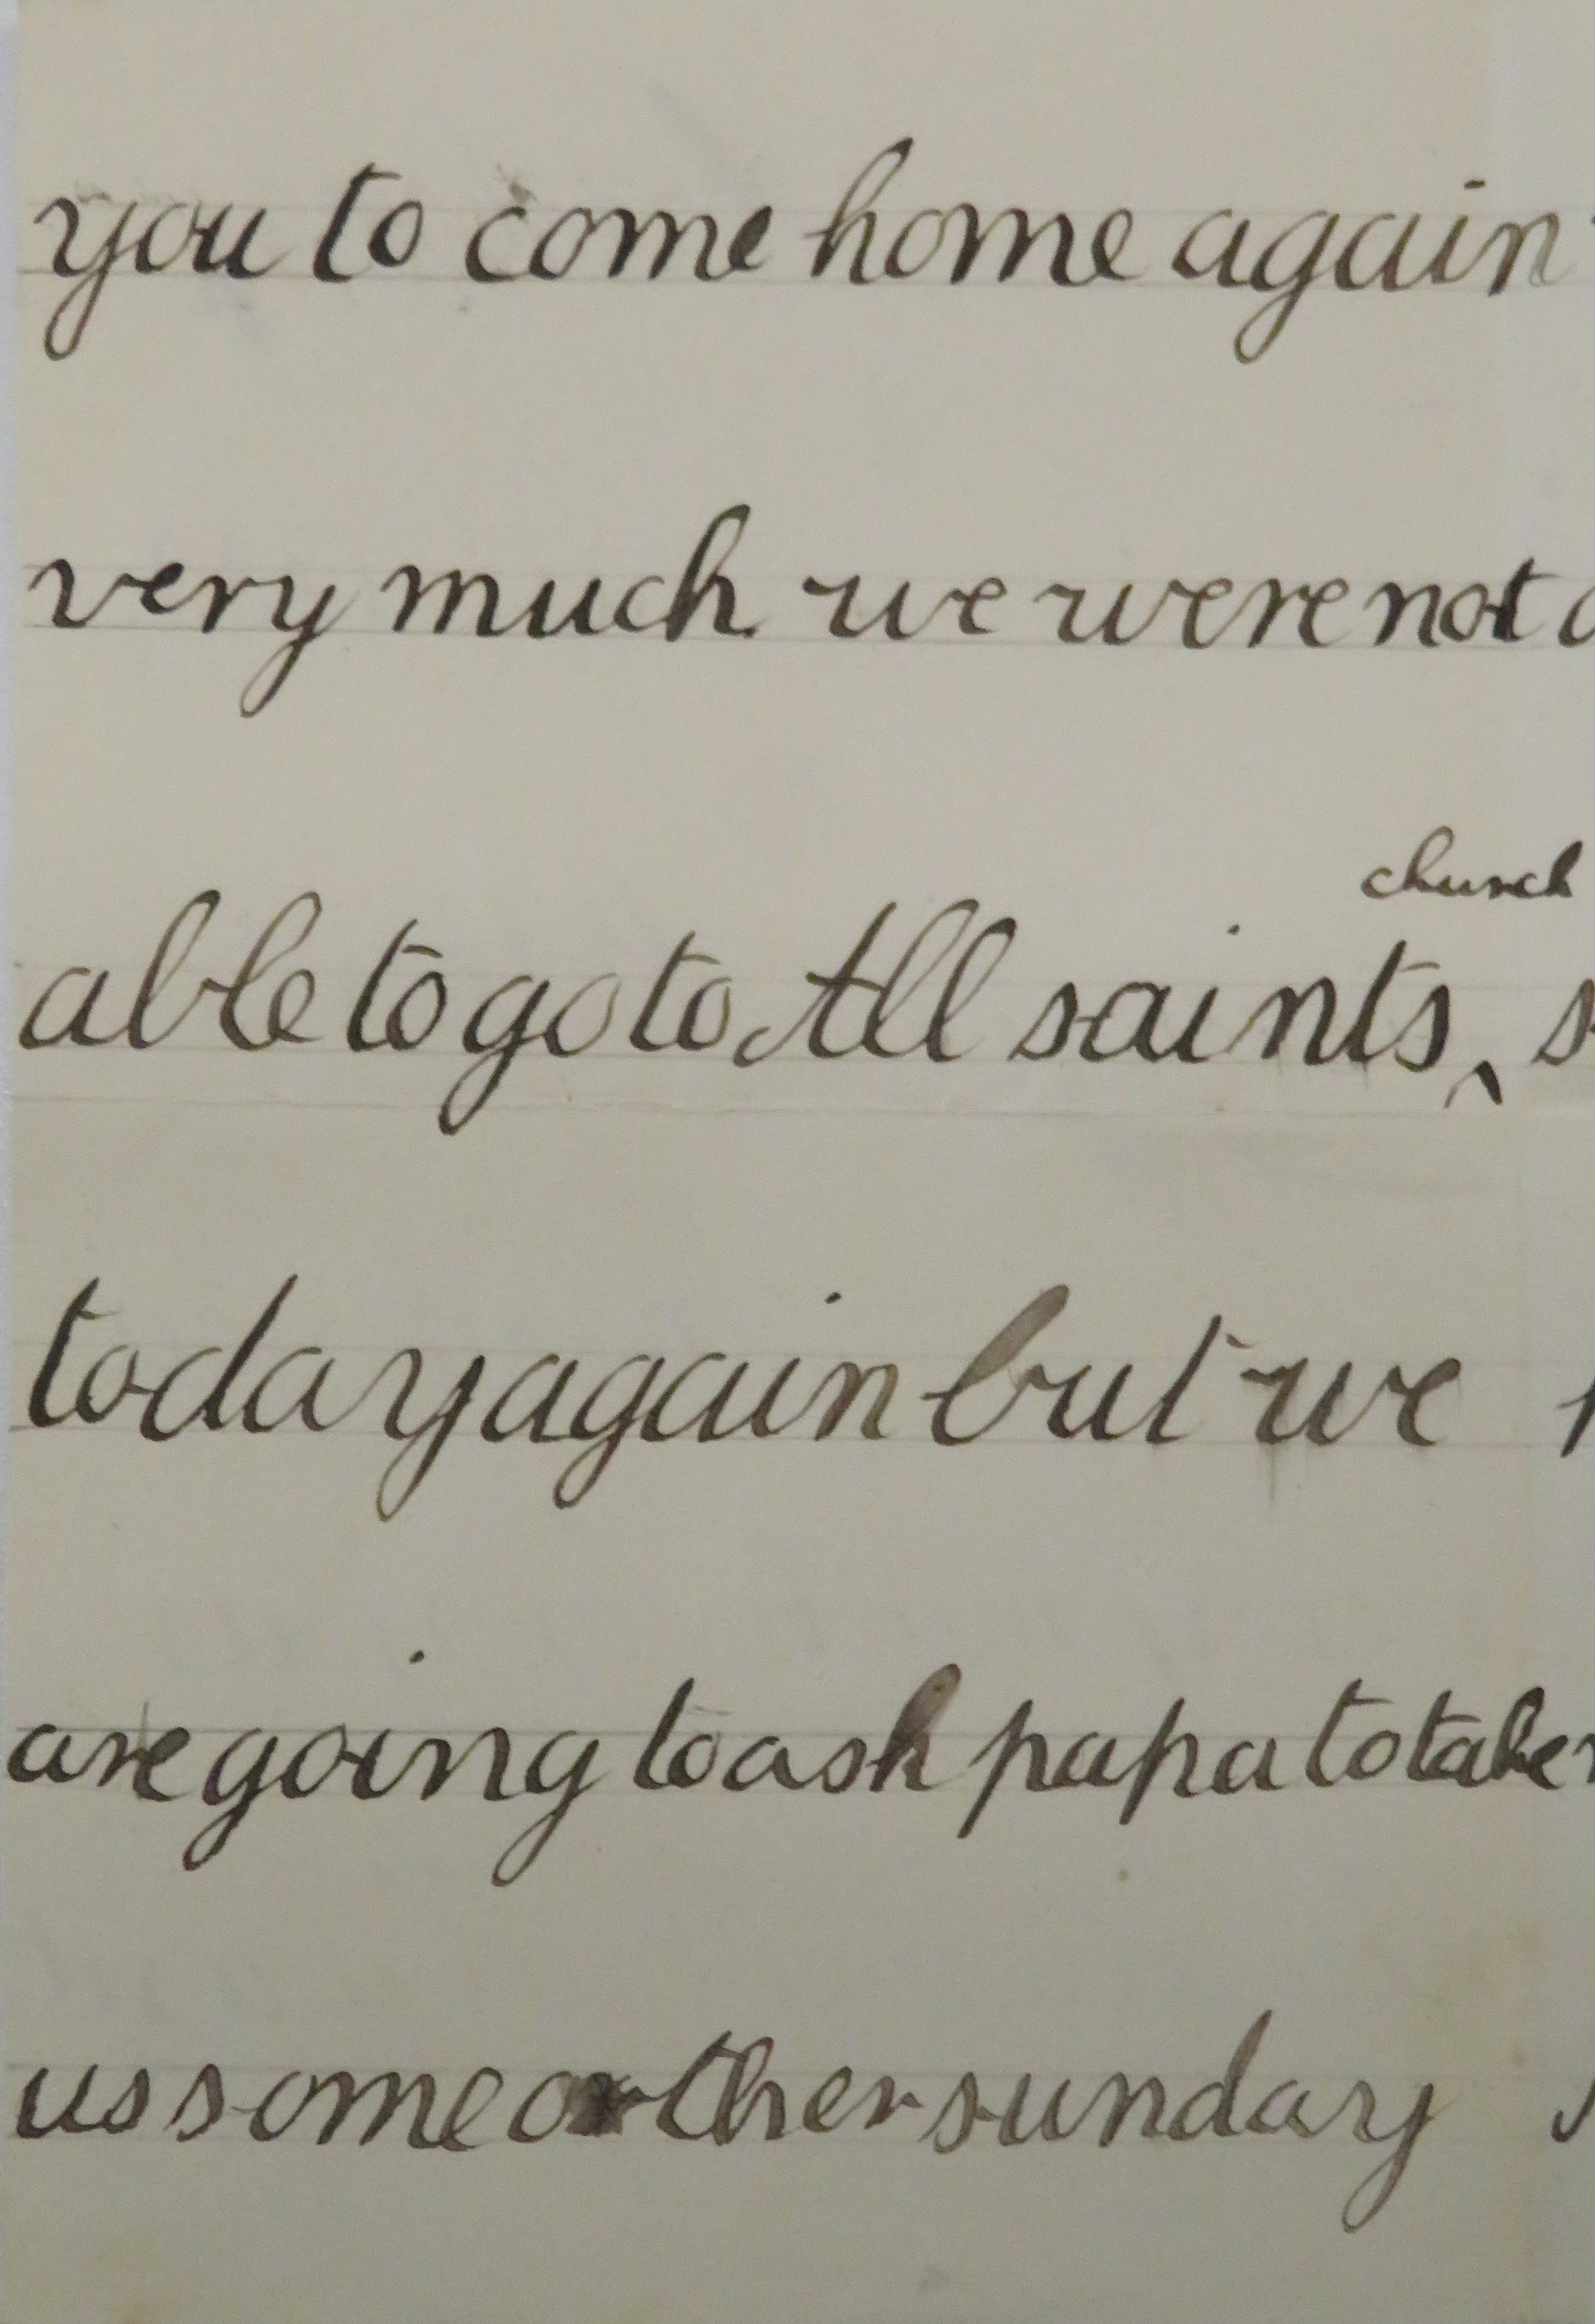 you to come home again
very much we were not
church
able to go to All saints
today again but we
are going to ask papa to take
us some other sunday